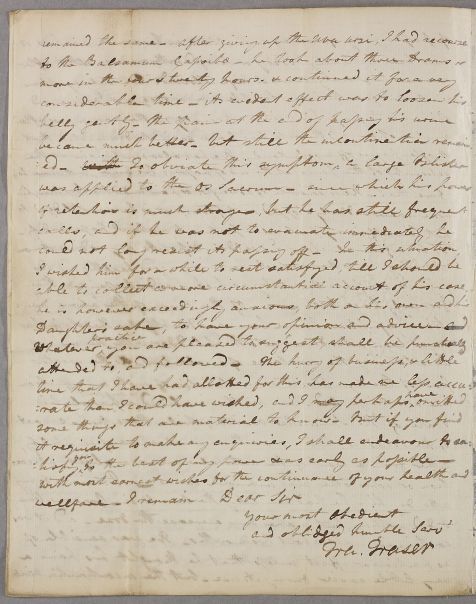 remained the same - after giving up the Uva Ursi, I had recourse
to the Balsamum Capivile - he took about three drams or
more in the twenty hours & continued it for a very
considerable time - its evident effect was to loosen his
belly gently - the pain at the end of passing his urine
became much better - but still the incontinence remain
ed - To obviate this symptom, a large Blister
was applied to the Os Sacrum - since which his power
of retention is much stronger, but he has still frequent
calls, and if he was not to evacuate immediately, he
could not long resist its passing off - In this situation
I wished him for a while to rest satisfyed, till I should be
able to collect a more circumstantial account of his case,
he is however exceedingly anxious, both on his own and his
Daughters sake, to have your opinion and advice - and
practice
whatever you are pleased to suggest, shall be punctually
attended to, and followed - The hurry of business, & little
time that I have had allotted for this has made me less accu
rate than I could have wished, and I may perhaps, have omitted
some things that are material to know - but if you find
it requisite to make any enquiries, I shall endeavour to
you, to the best of my power & as early as possible -
with most earnest wishes for the continuance of your health and
wellfare - I remain Dear Sir
Your most Obedient
and obliged humble Serv
Fra. Fraser